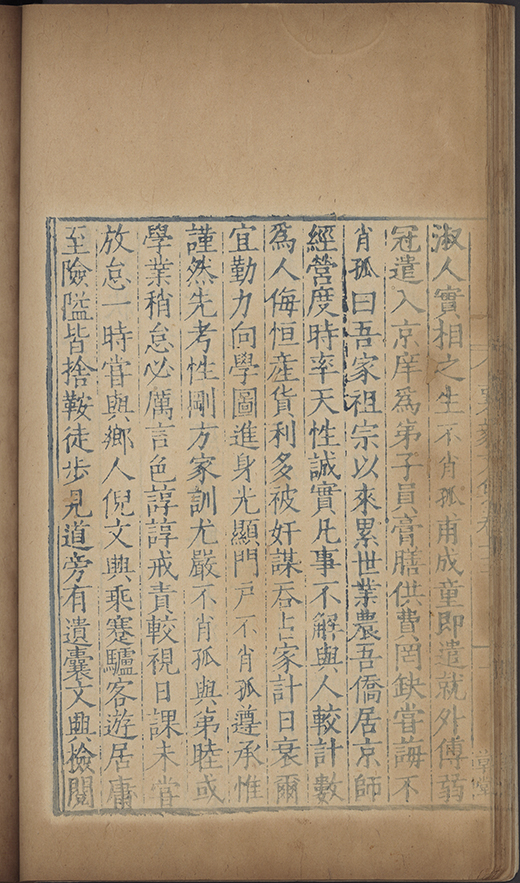 淑人實相之生不肖孤甫成童即遣就外傅弱
冠遣入京庠為弟子員膏膳供費罔缺嘗誨不
肖孤曰吾家祖宗以來累世業農吾僑居京師
經營度時率天性誠實凡事不解與人較計數
為人侮恒產貨利多被奸謀吞占家計日衰爾
宜勤力向學圖進身光顯門戶不肖孤遵承惟
謹然先考性剛方家訓尤嚴不肖孤與弟睦或
學業稍怠必厲言色諄諄戒責較視日課未嘗
放怠一時嘗與鄉人倪文興乘蹇驢客遊居庸
至險隘皆捨鞍徒步見道旁有遺囊文興檢閱